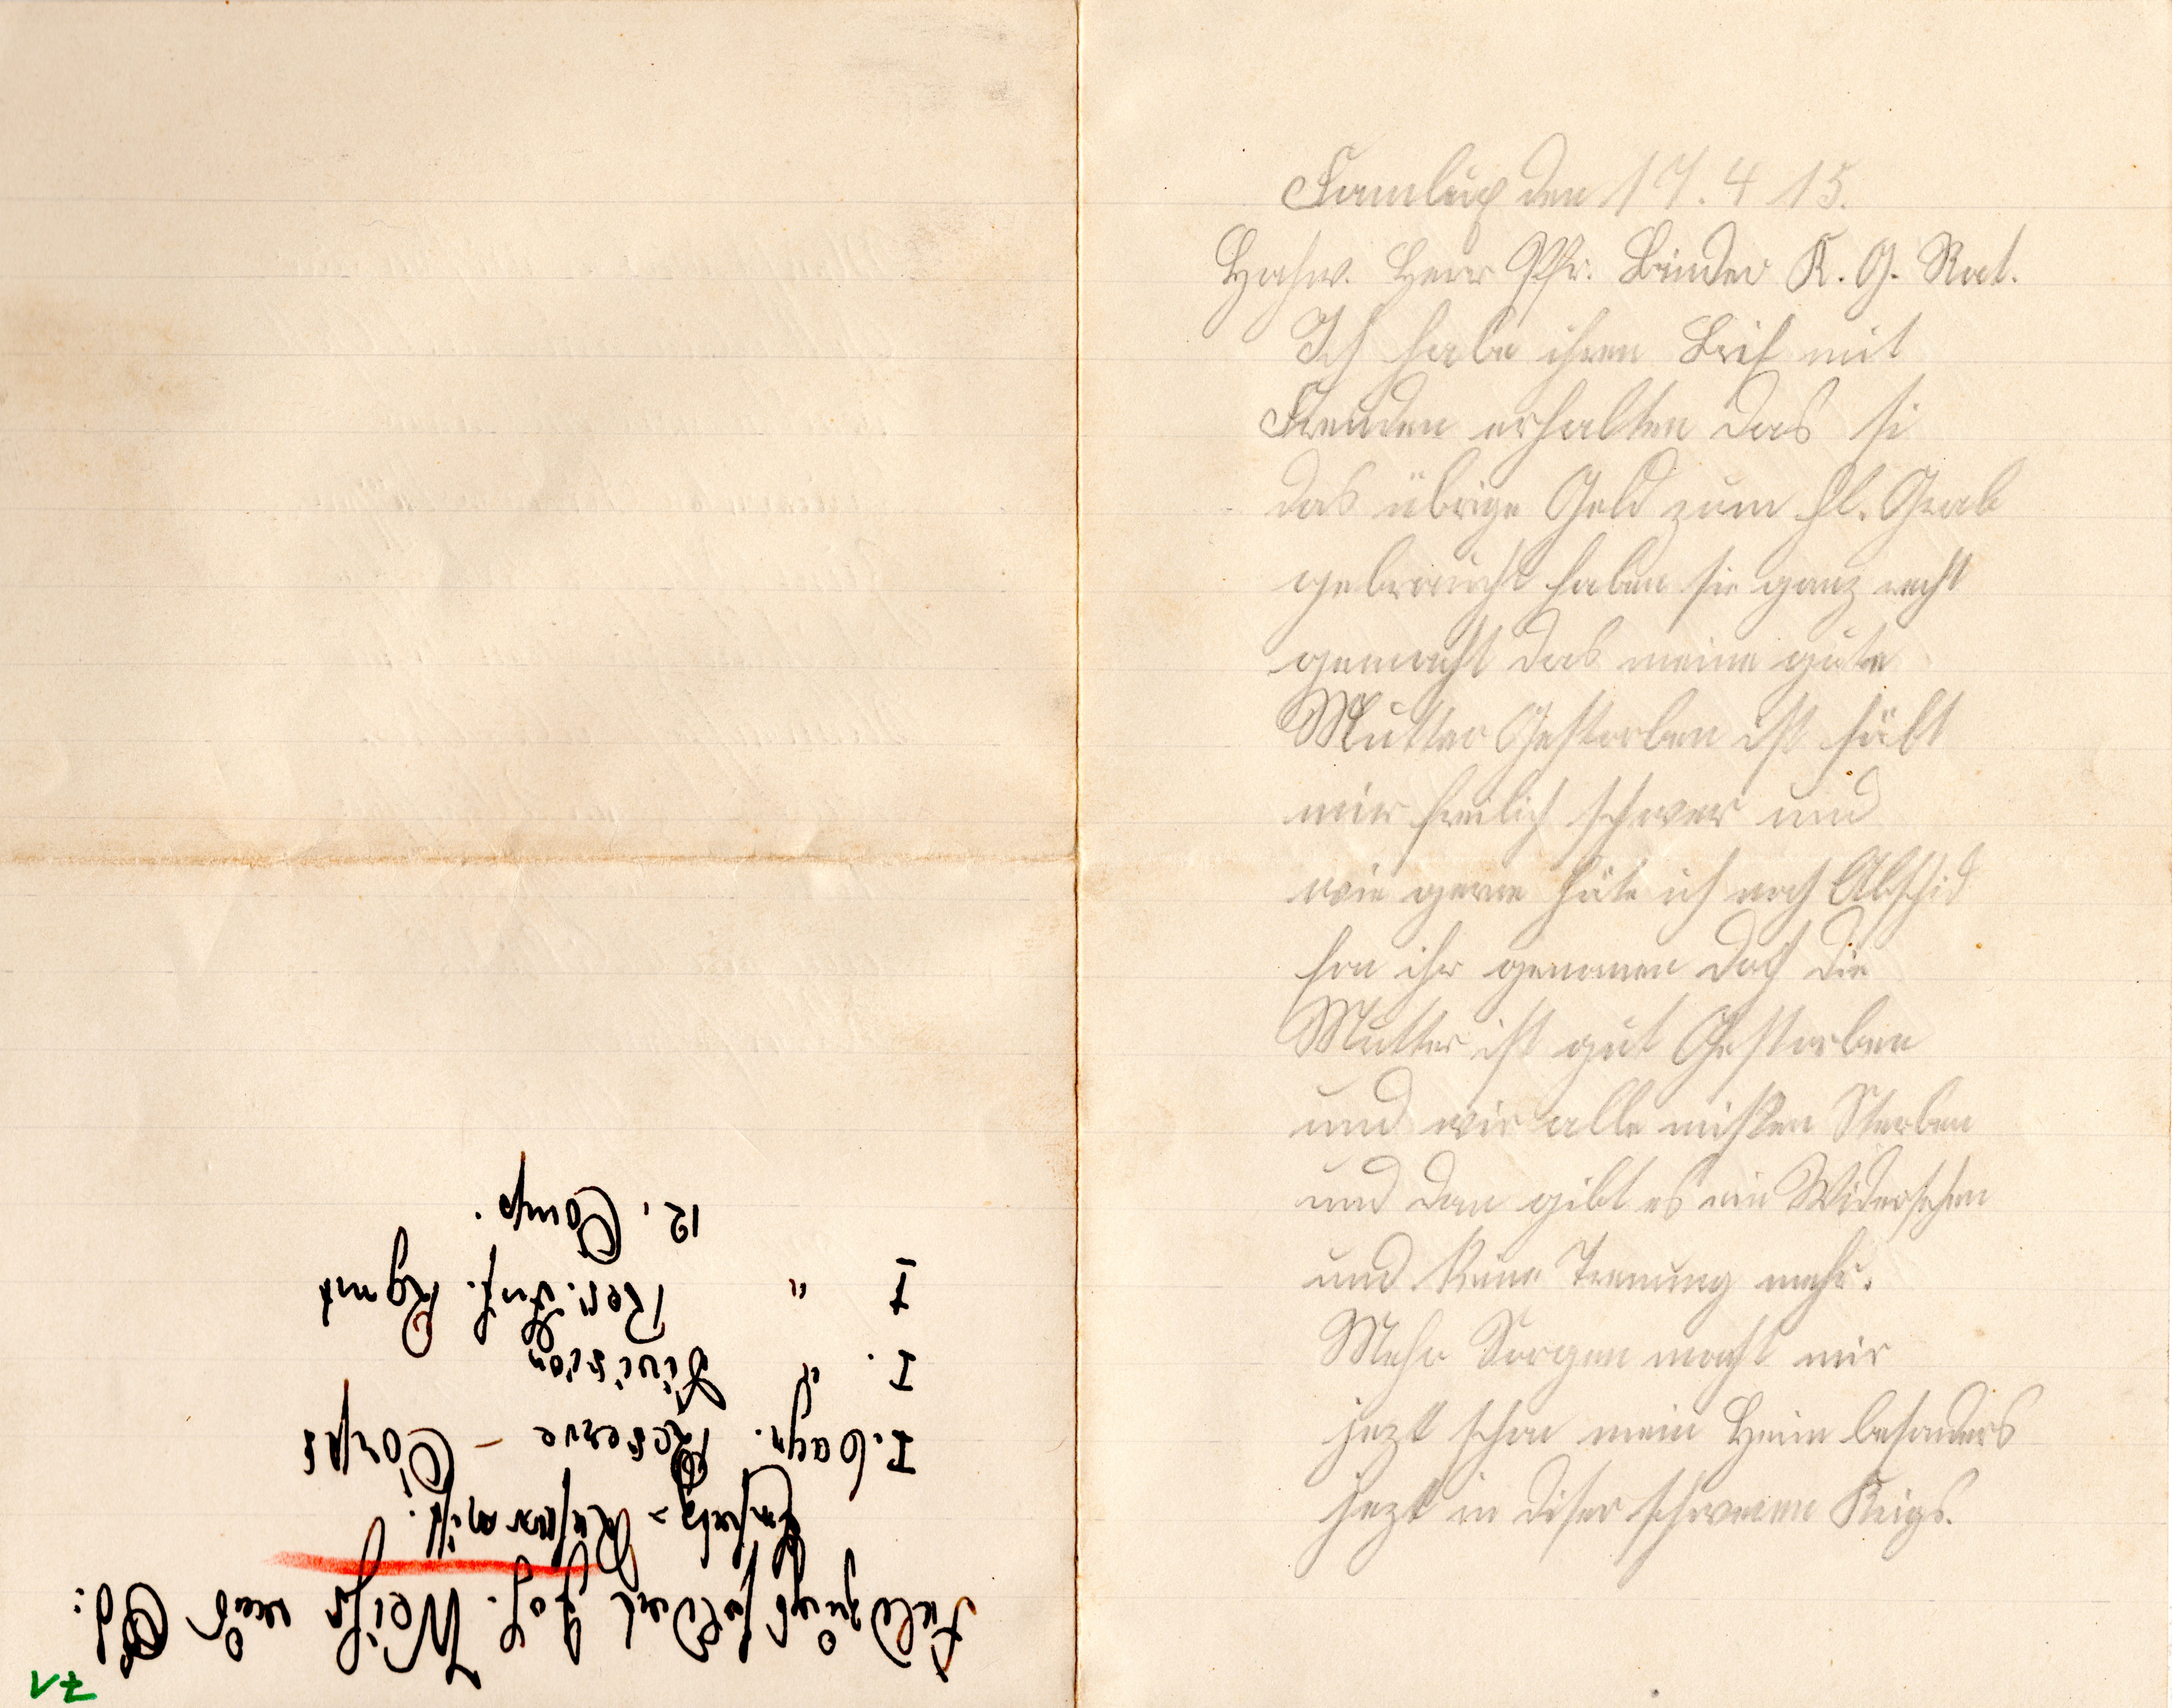 Famlüx den 17. 4 15.
Hohw. Herr Pfr. Binder K. G. Rat.
Ich habe ihren Brif mit
Freuden erhalten das si
das übrige Geld zum hl. Grab
gebraucht haben sie ganz recht
gemacht das meine gute
Mutter Gestorben ist fält
mir freilich schwer und
wie gerne häte ich noch Abschid
fon ihr genomen doch die
Mutter ist gut Gestorben
und wir alle missen Sterben
und dan gibt es ein Widersehen
und keine Trenung mehr.
Mehr Sorgen macht mir
jezt schon mein Heim besonders
jezt in diser schweren Krigs.
71
Feldzugssoldat Joh. Weihr aus
Ersatz-Reservist.
I. bayr. Reserve - Corps
I. " Division
I " Res. Inf. Rgmt
12. Comp.